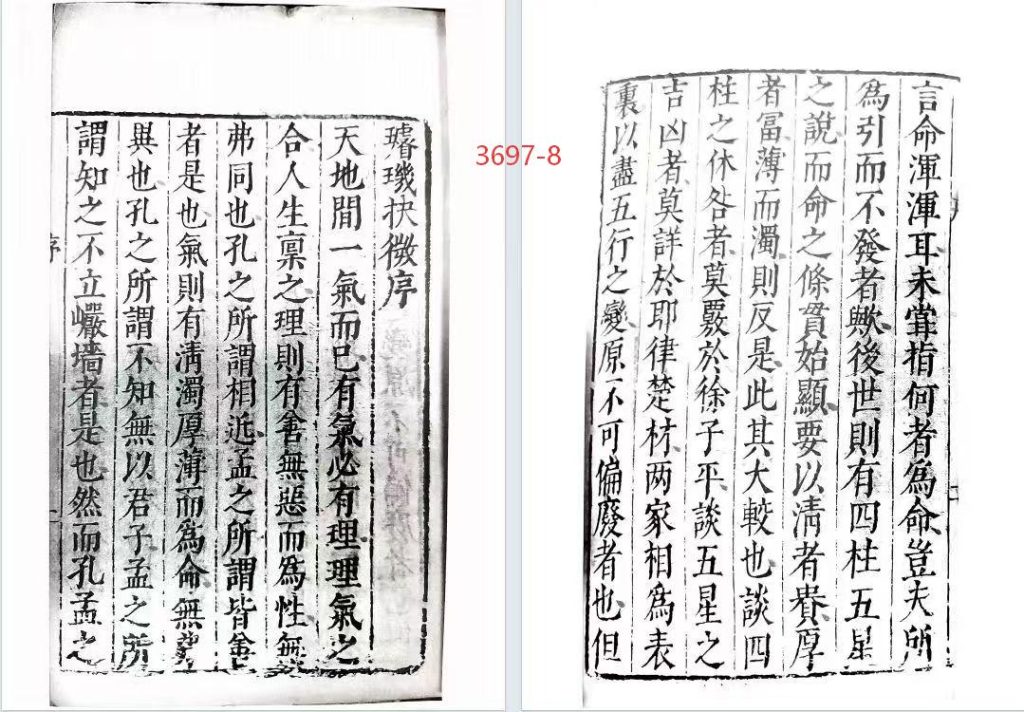 璿璣抉微序
天地間一氣而已有氣必有理理氣之
合人生禀之理則有善無惡而爲性無
弗同也孔之所謂相近孟之所謂皆善
者是也氣則有清濁厚薄而爲命無
異也孔之所謂不知無以君子孟之所
謂知之不立巖墻者是也然而孔孟之
序
3697-8
言命渾渾耳未嘗指何者爲命豈夫所
爲引而不發者歟後世則有四柱五星
之說而命之條貫始顯要以清者貴厚
者冨薄而濁則反是此其大較也談四
柱之休咎者莫覈於徐子平談五星之
吉凶者莫詳於耶律楚材两家相爲表
裏以盡五行之變原不可偏廢者也但